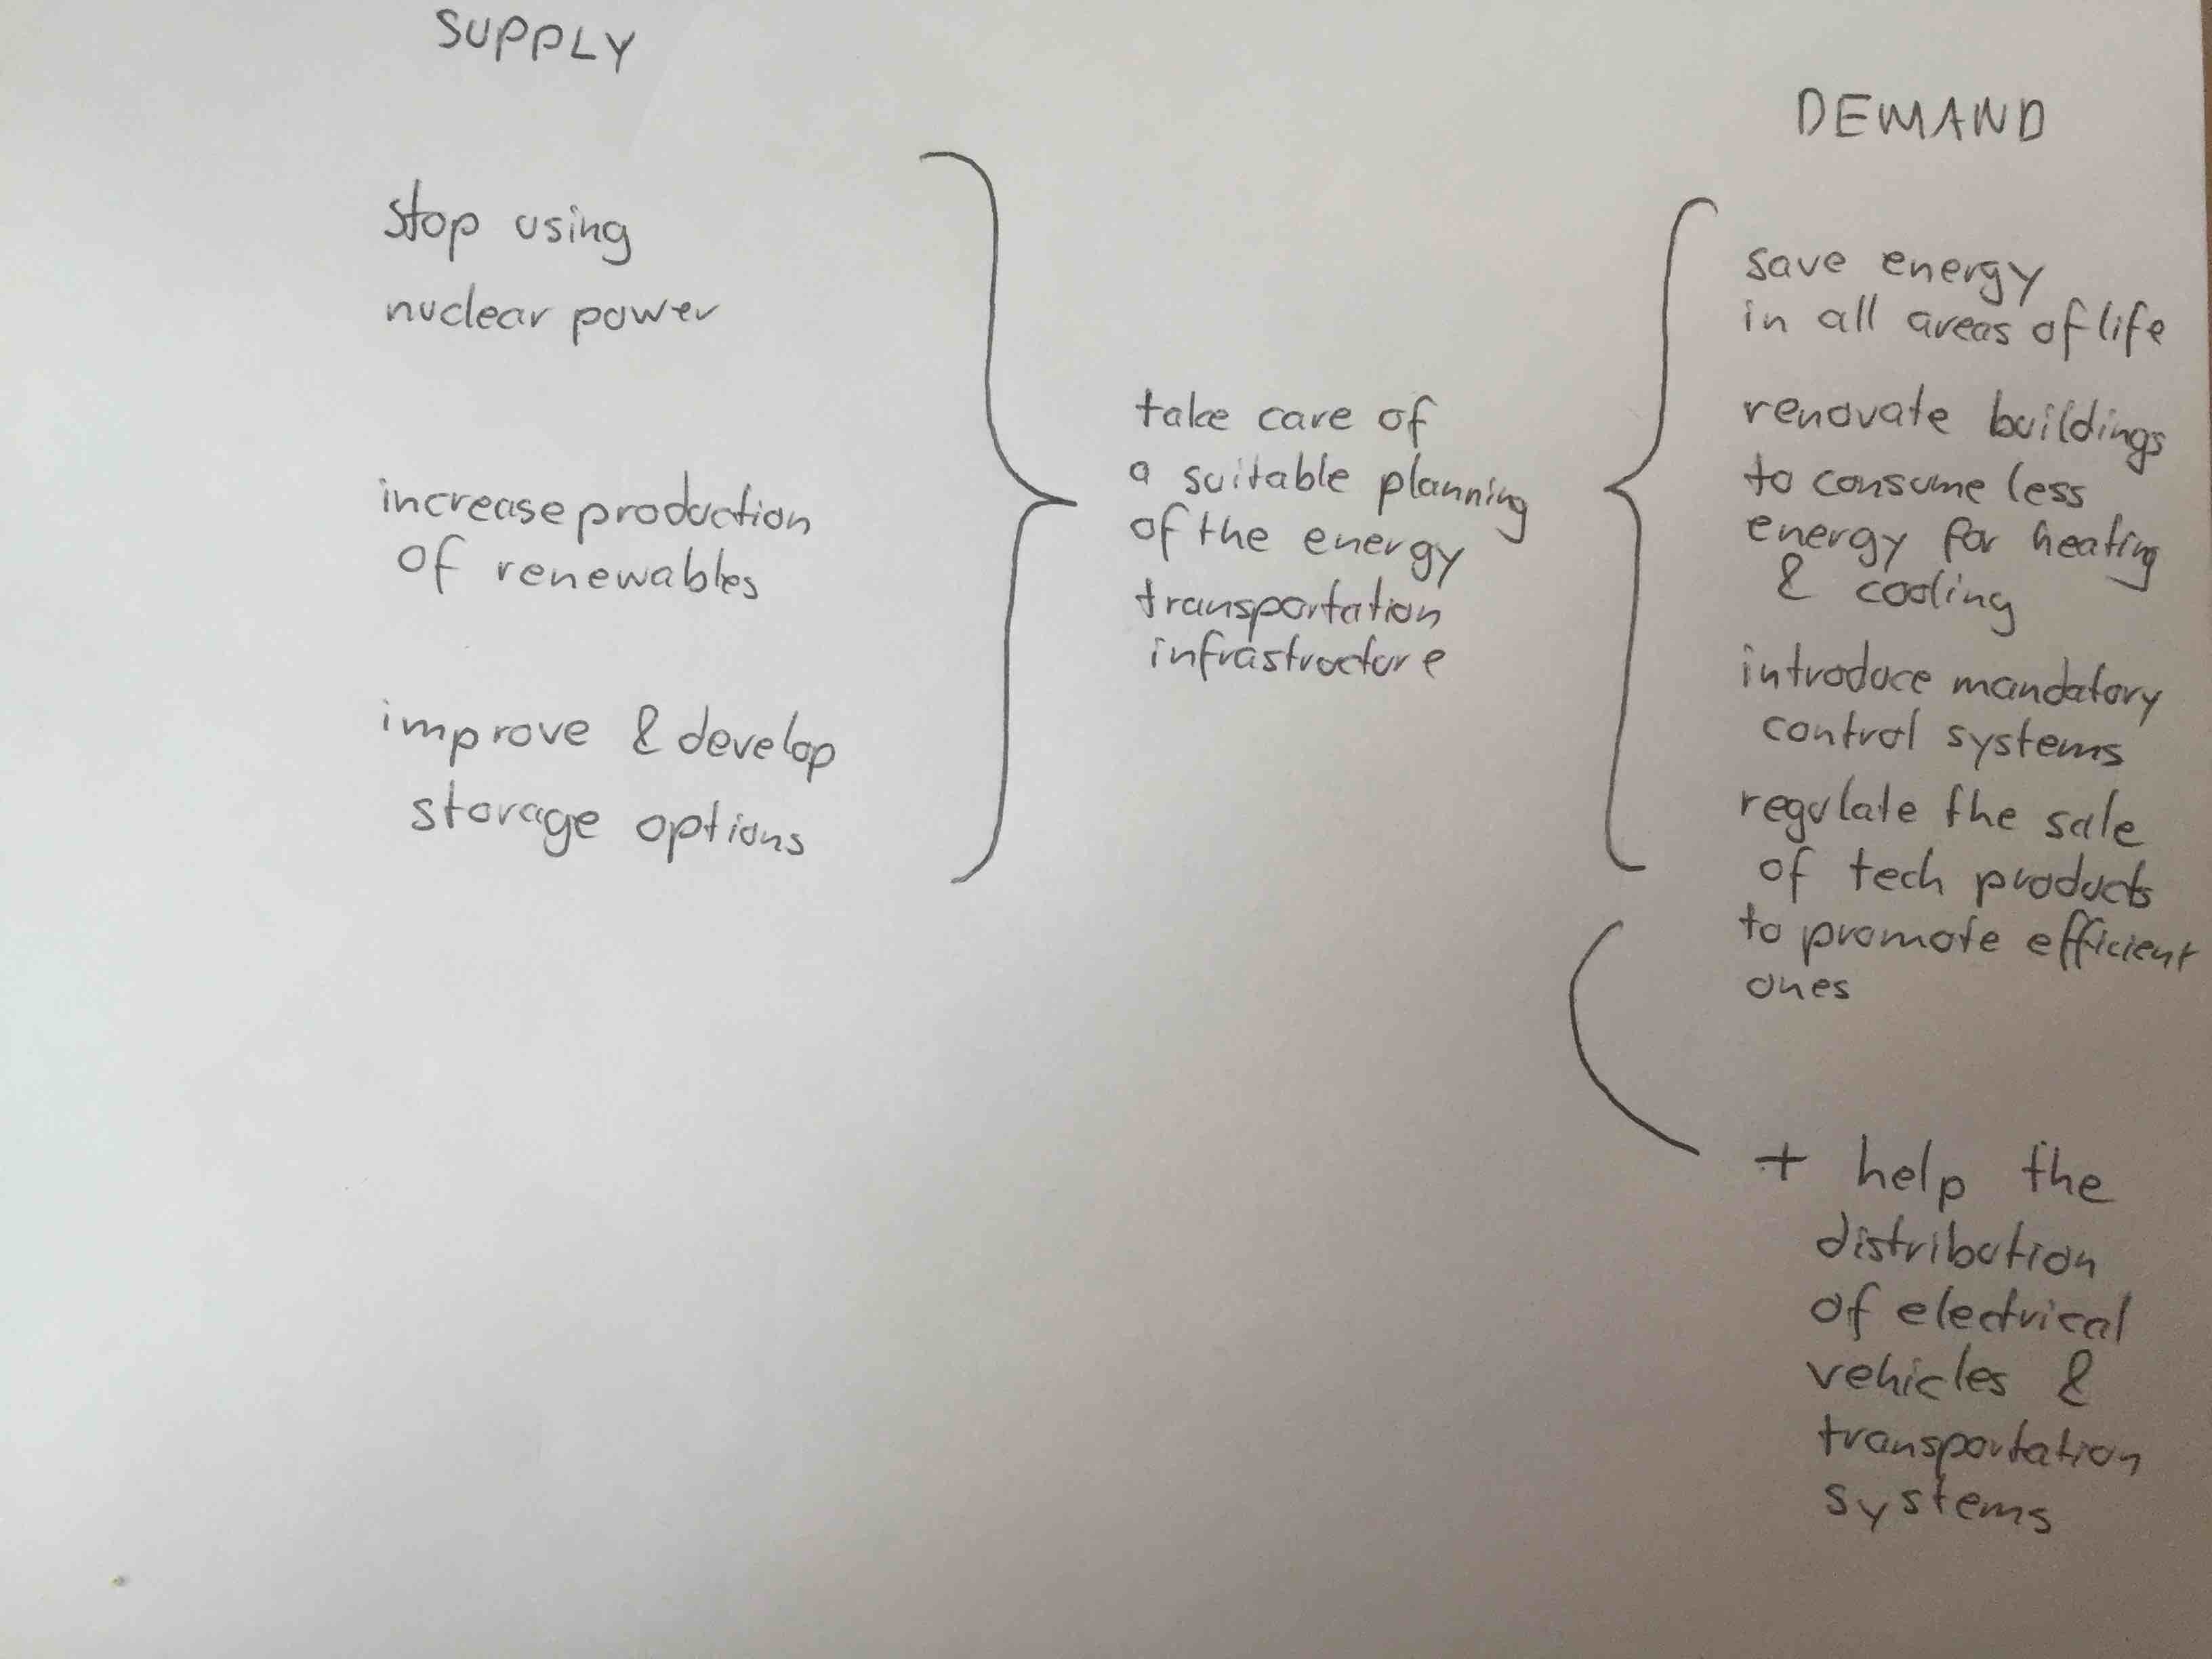 SUPPLY
stop using
nuclear power
increase production
of renewables
improve & develop
storage options
take care of
a suitable planning
of the energy
transportation
infrastructure
DEMAND
save energy
in all areas of life
renovate buildings
to consume less
energy for heating
& cooling
introduce mandatory
control systems
regulate the sale
of tech products
to promote efficient
ones
+ help the
distribution
of electrical
vehicles &
transportation
systems